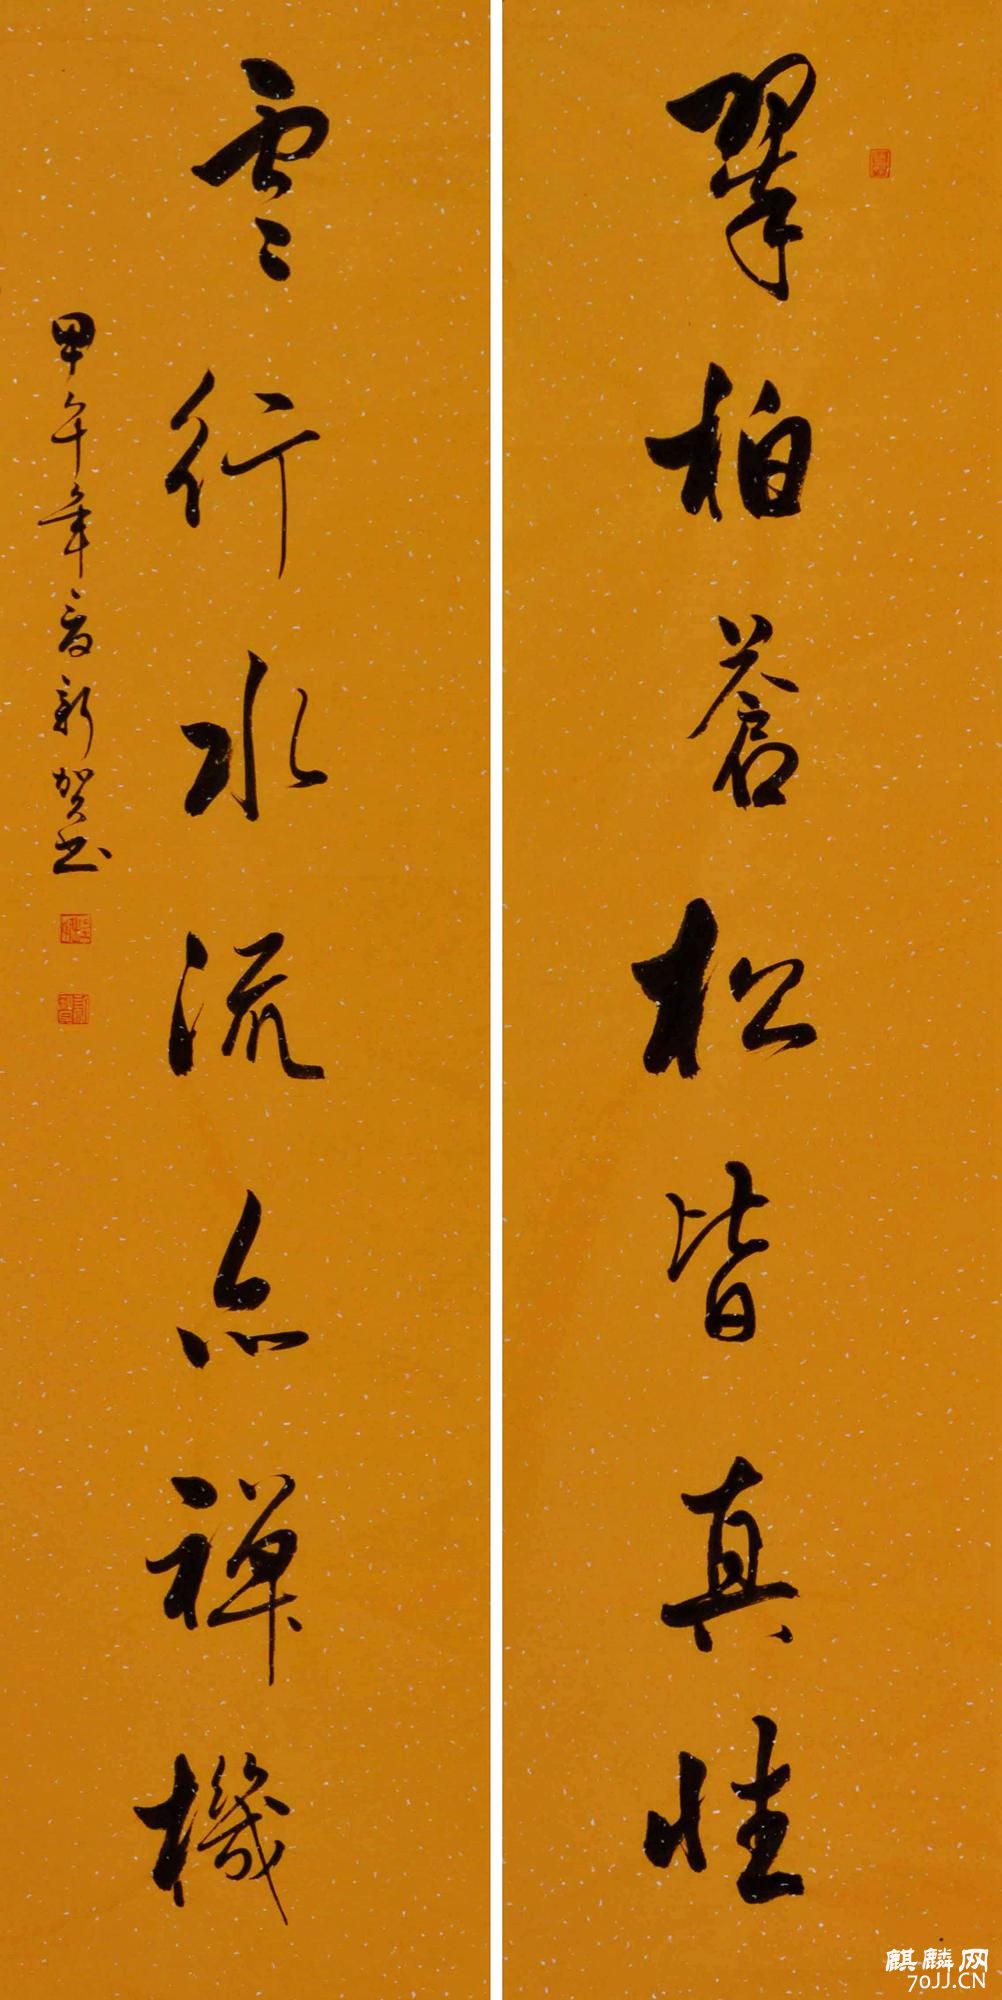 翠柏蒼松皆真性
雲行水流亦禪機
甲午年夏新贺书
麒麟网
70JJ.CN